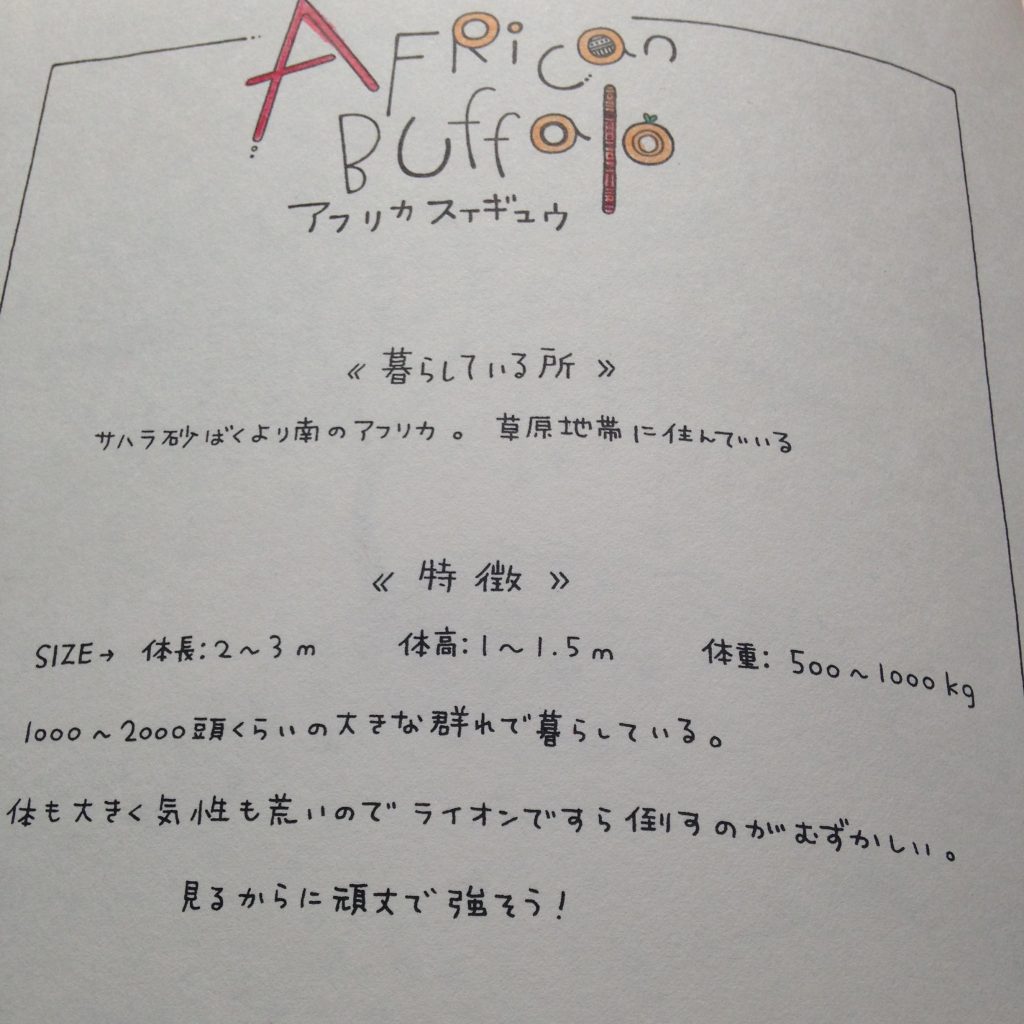 AFRican
BUffalo
アフリカスイギュウ
《 暮らしている所 》
サハラ砂ばくより南のアフリカ。 草原地帯に住んでいる
《 特徴 》
SIZE→ 体長:2〜3m 体高:1〜1.5m 体重: 500〜1000kg
1000〜2000頭くらいの大きな群れで暮らしている。
体も大きく気性も荒いのでライオンですら倒すのがむずかしい。
見るからに頑丈で強そう!